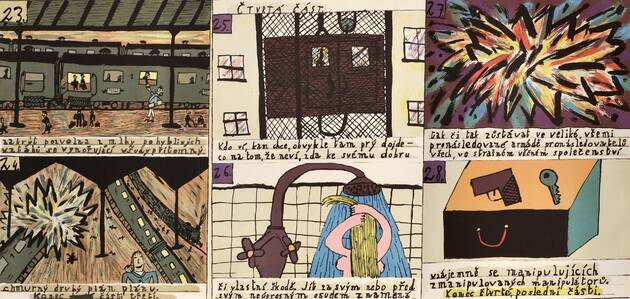 23.
povolna z mlhy pohyblivých
vztahů se vynořující všudypřítomný
24
chmurný druhý plán plánu.
Konec části třetí.
ČTVRTÁ ČÁST
25.
Kdo ví, kam chce, obvykle tam prý dojde –
co na tom, že neví, zda ke svému dobru
26.
či vlastní škodě. Jít za svým nebo před
svým neúprosným osudem znamená
27
tak či tak zůstávat ve veliké, všemi
pronásledované armádě pronásledovatelů
všech, ve strašném věčném společenství
28.
vzájemně se manipulujících
zmanipulovaných manipulátorů.
Konec čtvrté, poslední části.